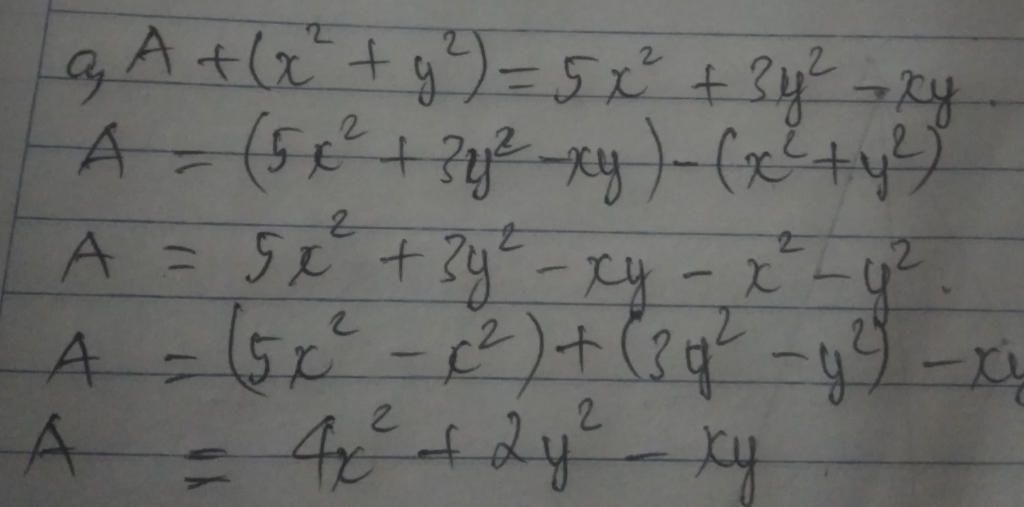 a, A + (x² + y²) = 5x² + 3y² - xy.
A = (5x² + 3y² - xy) - (x² + y²)
A = 5x² + 3y² - xy - x² - y².
A = (5x² - x²) + (3y² - y²) - xy
A = 4x² + 2y² - xy